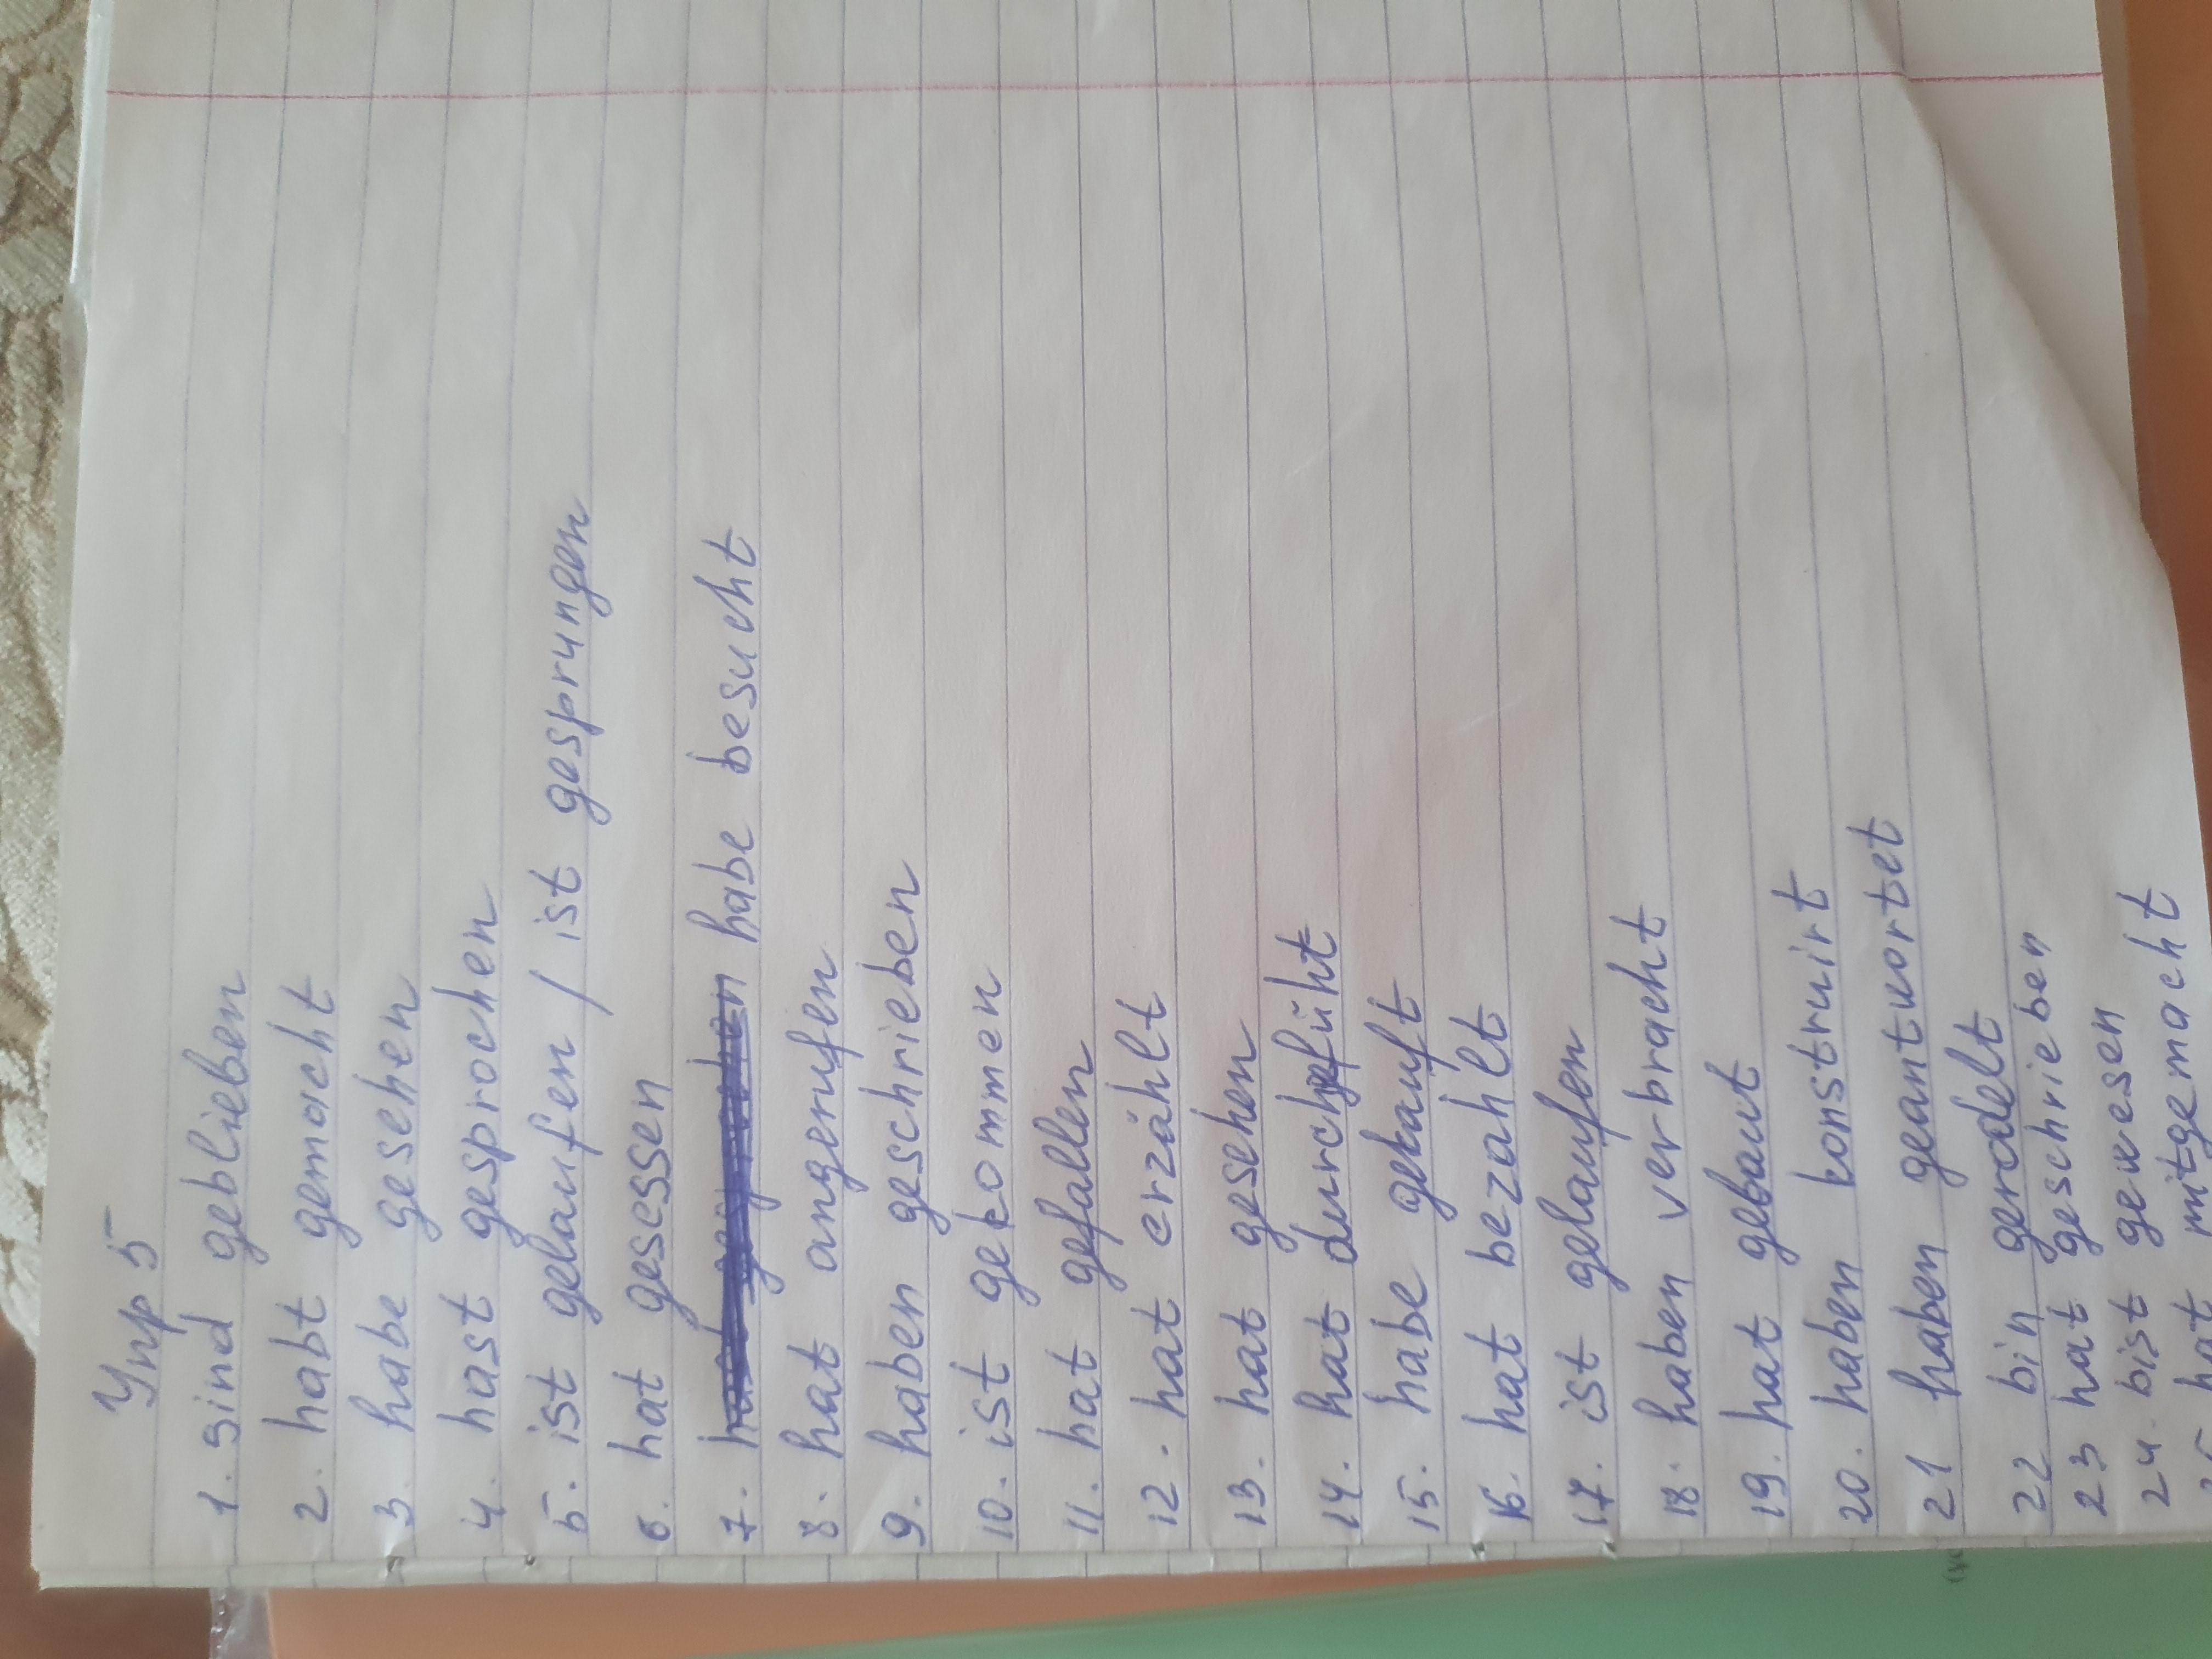 Упр 5
1. sind geblieben
2. habt gemacht
3. habe gesehen
4. hast gesprochen
5. ist gelaufen / ist gesprungen
6. hat gesessen
7. habe besucht
8. hat angerufen
9. haben geschrieben
10. ist gekommen
11. hat gefallen
12. hat erzählt
13. hat gesehen
14. hat durchgefüht
15. habe gekauft
16. hat bezahlt
17. ist gelaufen
18. haben verbracht
19. hat gebaut
20. haben konstruirt
21 haben geantwortet
22 bin gerodelt
23 hat geschrieben
24. bist gewesen
hat mitgemacht